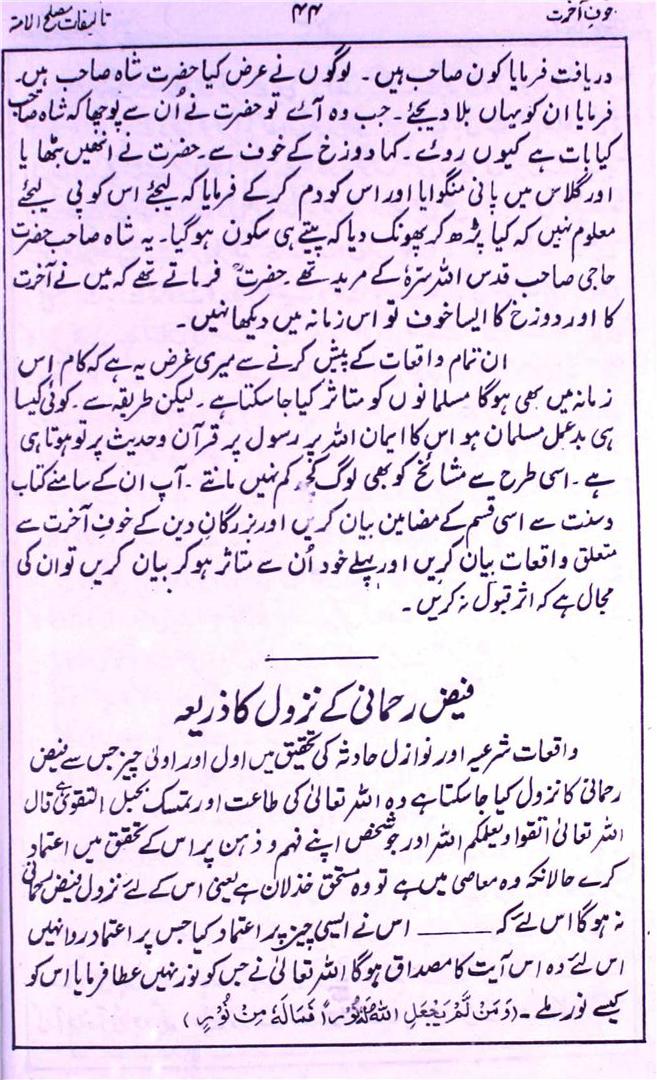 خوفِ آخرت ۴۴ تالیفات مصلح الامتہ
دریافت فرمایا کون صاحب ہیں۔ لوگوں نے عرض کیا حضرت شاہ صاحب ہیں۔
فرمایا ان کو یہاں بلا دیجئے۔ جب وہ آئے تو حضرت نے اُن سے پوچھا کہ شاہ صاحب
کیا بات ہے کیوں روئے۔ کہا دوزخ کے خوف سے۔ حضرت نے انھیں بٹھایا
اور گلاس میں پانی منگوایا اور اس کو دم کر کے فرمایا کہ لیجئے اس کو پی لیجئے
معلوم نہیں کہ کیا پڑھ کر پھونک دیا کہ پیتے ہی سکون ہو گیا۔ یہ شاہ صاحب حضرت
حاجی صاحب قدس اللہ سرہٗ کے مرید تھے۔ حضرتؒ فرماتے تھے کہ میں نے آخرت
کا اور دوزخ کا ایسا خوف تو اس زمانہ میں دیکھا نہیں۔
ان تمام واقعات کے پیش کرنے سے میری غرض یہ ہے کہ کام اس
زمانہ میں بھی ہوگا مسلمانوں کو متاثر کیا جا سکتا ہے۔ لیکن طریقہ سے۔ کوئی کیسا
ہی بدعمل مسلمان ہو اس کا ایمان اللہ پر رسول پر قرآن وحدیث پر تو ہوتا ہی
ہے۔ اسی طرح سے مشائخ کو بھی لوگ کچھ کم نہیں مانتے۔ آپ ان کے سامنے کتاب
وسنت سے اسی قسم کے مضامین بیان کریں اور بزرگانِ دین کے خوفِ آخرت سے
متعلق واقعات بیان کریں اور پہلے خود اُن سے متاثر ہو کر بیان کریں تو ان کی
مجال ہے کہ اثر قبول نہ کریں۔
فیض رحمانی کے نزول کا ذریعہ
واقعات شرعیہ اور نوازل حادثہ کی تحقیق میں اول اور اولیٰ چیز جس سے فیض
رحمانی کا نزول کیا جا سکتا ہے وہ اللہ تعالیٰ کی طاعت اور تمسک بحبل التقویٰ ہے قال
اللہ تعالیٰ اتقوا ویعلمکم اللہ اور جو شخص اپنے فہم و ذہن پر اس کے تحقق میں اعتماد
کرے حالانکہ وہ معاصی میں ہے تو وہ مستحق خذلان ہے یعنی اس کے لئے نزول فیض رحمانی
نہ ہوگا اس لئے کہ ـــــــ اس نے ایسی چیز پر اعتماد کیا جس پر اعتماد روا نہیں
اس لئے وہ اس آیت کا مصداق ہوگا اللہ تعالیٰ نے جس کو نور نہیں عطا فرمایا اس کو
کیسے نور ملے۔ (وَمَنْ لَّمْ یَجْعَلِ اللّٰہُ لَہٗ نُوْرًا فَمَا لَہٗ مِنْ نُّوْرٍ)